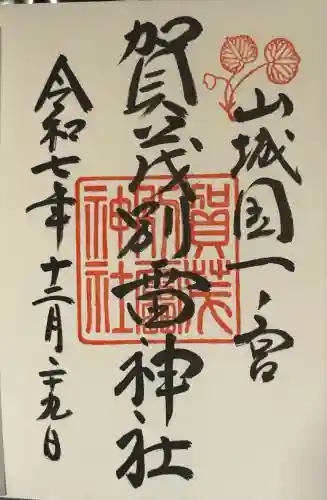 山城国一ノ宮
賀茂別雷神社
賀茂別雷神社
令和七年十二月二十九日